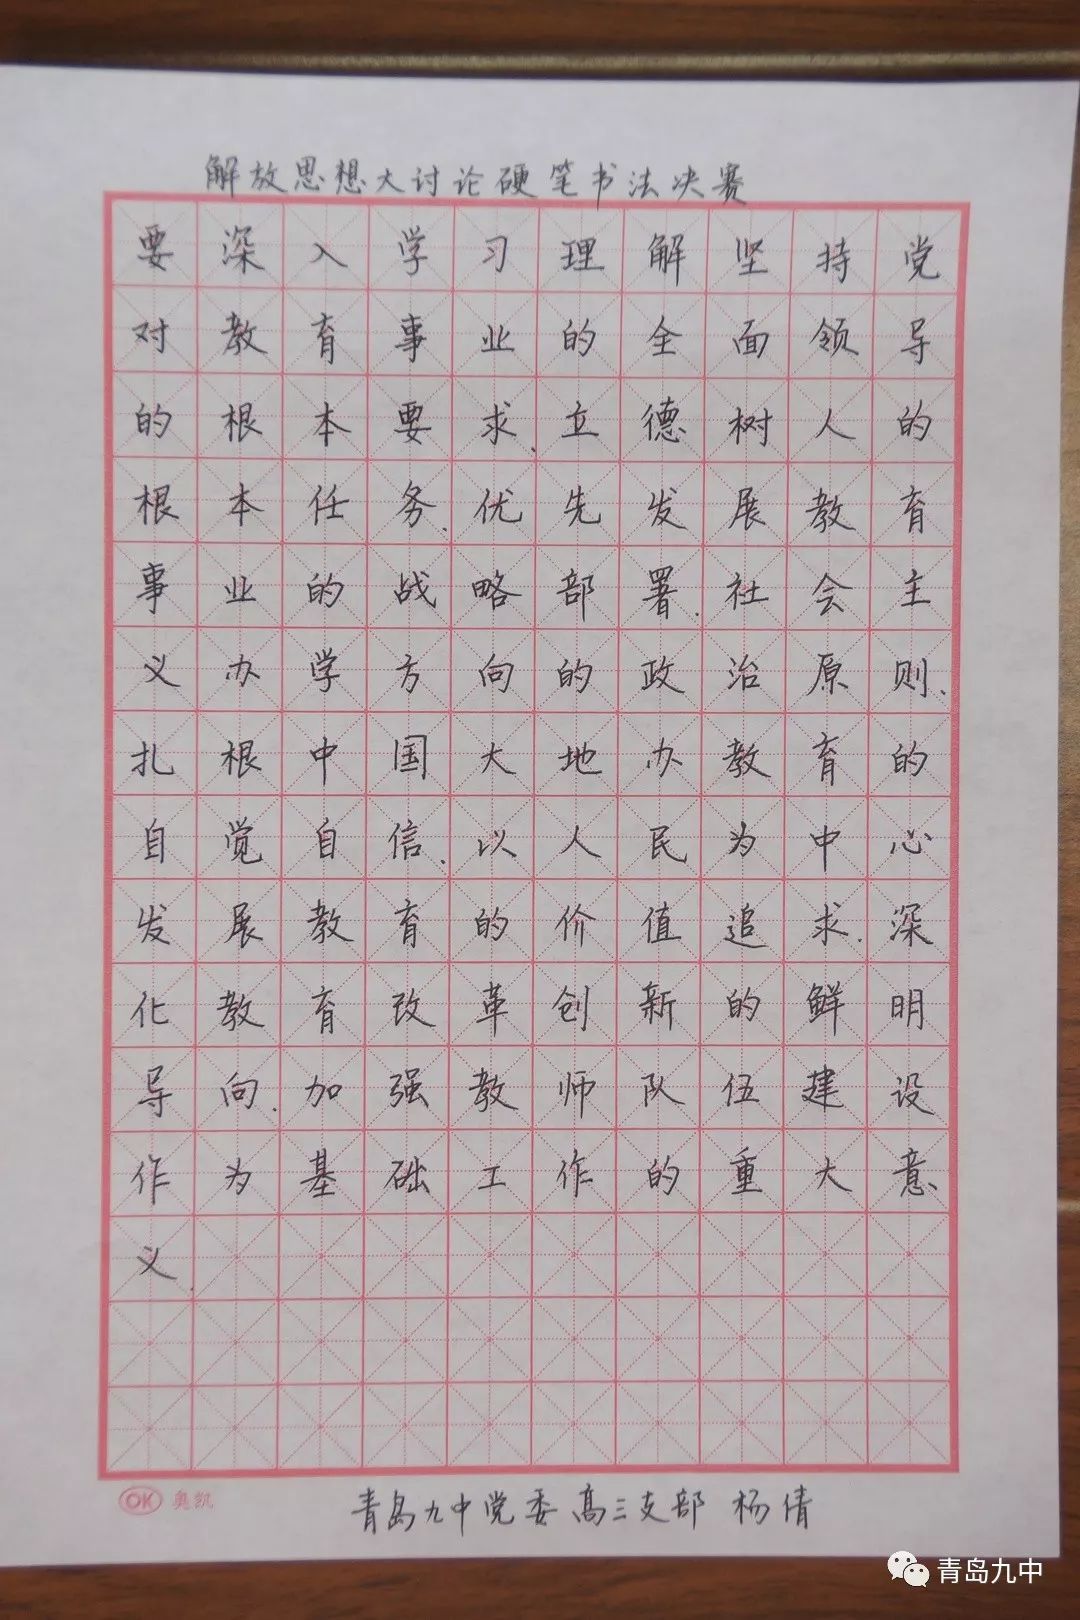 解放思想大讨论硬笔书法决赛
要深入学习理解坚持党
对教育事业的全面领导
的根本要求、立德树人的
根本任务、优先发展教育
事业的战略部署、社会主
义办学方向的政治原则、
扎根中国大地办教育的
自觉自信、以人民为中心
发展教育的价值追求、深
化教育改革创新的鲜明
导向、加强教师队伍建设
作为基础工作的重大意
义.
OK 奥凯
青岛九中党委高三支部 杨倩
青岛九中